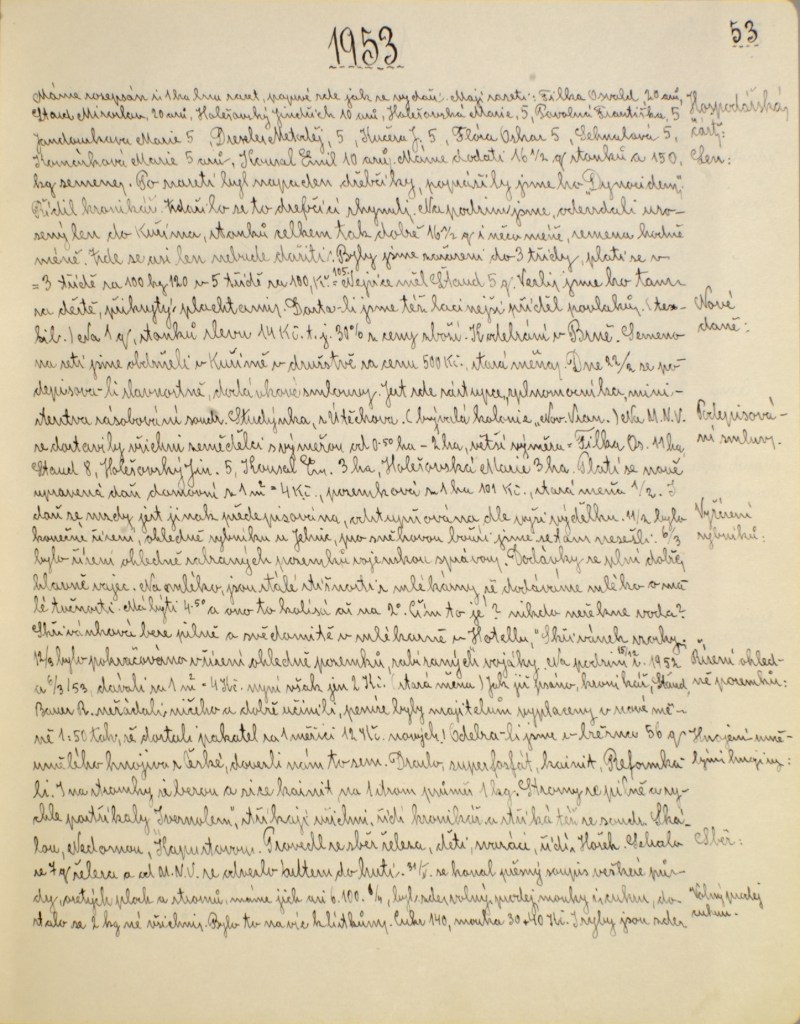 1953
53
Máme rozepsán i 1 ha lnu zaset, poprvé zde jak se vydaří. Mají zaseti: Filka Osvald 20 arů,
Staud Miroslav 20 arů, Holešovský Jindřich 10 arů, Holešovská Marie, 5, Povolná Františka, 5
Jandourkova Marie 5, Drexler Metoděj, 5, Kučera J, 5, Flóra Oskar 5, 5,
Marie 5 arů, Kousal Emil 10 arů. Máme dodati 16 1/2 q stonků a 150,
kg semene. Po zasetí byl napaden dřebčíky, poprášily jsme ho Dynocidem,
Řídil kronikář. Zdařilo se to dřebčíci zhynuli. Na podzim jsme, odevzdali
len do Kuřima, stonků celkem tak dobře 16 1/2 q i něco méně, semena hodně
méně. Zde se asi len nebude dařiti. Byly jsme zařazeni do 3 třídy, platí se v
= 3 třídě za 100 kg 120 v 5 třídě za 100, Kč. =105. Nejvíce měl Staud 5 q. Vezly jsme ho tam
za deště, přikrytý plachtami. Dosta-li jsme též lacinější příděl povlaků, (tex-
til.) Na 1 q, stonků slevu 14 Kč. t. j. 30% z ceny zboží. K odebrání v Brně. Semeno
na setí jsme obdrželi v Kuřimě v družstvě za cenu 500 Kč. stará měna. Dne 22/2 se po-
depisova-li slavnostně, dodávkové smlouvy. Jest zde zástupce, zplnomocnika, mini-
sterstva zásobování soudr. Studýnka, z Útěchova. (bývalá kolonie "Nov. Vran.) Na M.N.V.
se dostavily všichni zemědělci s výměrou od 0·50 ha - 2 ha, větší výměra = Filka Os. 11 ha
Staud 8, Holešovský Jin. 5, Kousal Em. 3 ha, Holešovská Marie 3 ha. Platí se nově
upravená daň domovní z 1 m² = 4 Kč., pozemková z 1 ha 101 Kč., stará měna 1/2. I
daň ze mzdy jest jinak předepisována, odstupňována dle výši výdělku. 11/2 bylo
konečné řízení, ohledně rybníku u Jelnic, pro sněhovou bouři jsme se tam nesešli. 6/3
bylo řízení ohledně zabraných pozemků vojenskou správou. Dodávky se plní dobře,
hlavně vajec. Na mléko, jsou stálé stížnosti z mlékárny, že dodáváme mléko o ma-
lé tučnosti. Má býti 4·50 a ono to kolísá až na 2°. Čím to je? nikdo neřekne voda?
Skřivánková bere pilně a svědomitě v mlékárně v Hotellu, "Skřivánek
12/3 bylo pokračováno v řízení ohledně pozemků, zabíraných vojáky. Na podzim 15/12. 1952
a 6/3 53, dávali za 1 m² - 4 Kč. nyní však jen 2 Kč. (stará měna) Jak již psáno, kronikář, Staud,
Bauer R. nežádali, ničeho a dobře učinili, peníze byly majitelům vyplaceny v nové mě-
ně 1:50 tak, že dostali pakatel za 1 měřici 12 Kč. nových! Odebra-li jsme v březnu 56 q
umělého hnojiva z České, dovezli nám to sem. Draslo, superfosfát, kainit, Reformka-
li. I na stromky se berou a sice kainit na 1 strom průměr 1 kg. Stromy se pilně a ry-
chle postříkaly Ivernolem", stříkají všichni, řídí kronikář a stříká též se soudr. Ska-
lou, Nedomou, "Kapustovou. Provedl se sběr železa, děti, svazáci, řídí s. Hork. Sebralo
se 7 q železa a od M.N.V. se odvezlo autem do hutí. 31/5. se konal přesný soupis veškeré pů-
dy, osetých ploch a stromů, máme jich asi 6.100. 6/4, byl zde, volný, prodej mouky i, cukru, do-
stalo se 2 kg né všichni. Bylo to na víc k lístkům. Cukr 140, mouka 30 a 40 Kč. I ryby jsou zde
Hospodářská
část:
Len:
Nové
daně:
Podepisová-
ní smluv.
Vyřízení
rybníků:
Řízení ohled-
ně pozemků:
Hnojení umě-
lými hnojivy:
Sběr:
Volný prodej
cukru.